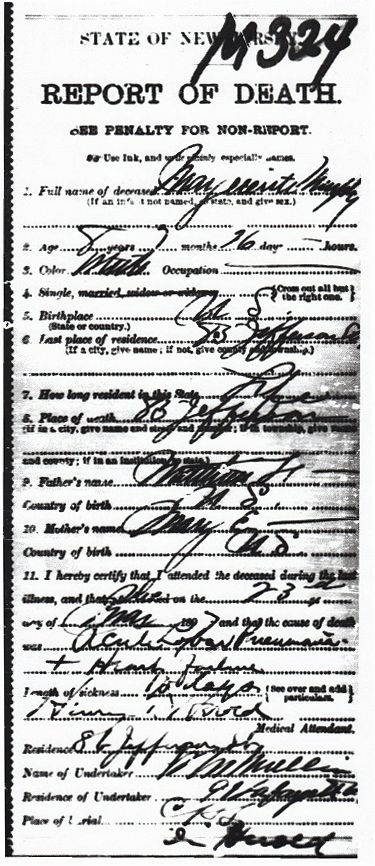 M 324
STATE OF NEW JERSEY
REPORT OF DEATH.
SEE PENALTY FOR NON-REPORT.
Use Ink, and write plainly especially names.
1. Full name of deceased Marguerite Murphy
(If an infant not named, so state, and give sex.)
2. Age 8 years 7 months 26 day — hours.
3. Color White Occupation —
4. Single, married, widow or widower {Cross out all but the right one.}
5. Birthplace U S
(State or country.)
6. Last place of residence Jefferson St
(If a city, give name; if not, give county and township.)
7. How long resident in this State Life
8. Place of death 86 Jefferson
(if in a city, give name and street and number; if in township, give name
and county; if in an institution, so state.)
9. Father's name William F.
Country of birth U S.
10. Mother's name Mary E.
Country of birth U S
11. I hereby certify that I attended the deceased during the last
illness, and that she died on the 23
day of Mar 1897 and that the cause of death
was Acute Lobar Pneumonia
+ Heart Failure
Length of sickness 10 days {See over and add particulars.}
Henry
Medical Attendant.
Residence 86 Jefferson St
Name of Undertaker W McMullin
Residence of Undertaker Lafayette
Place of burial